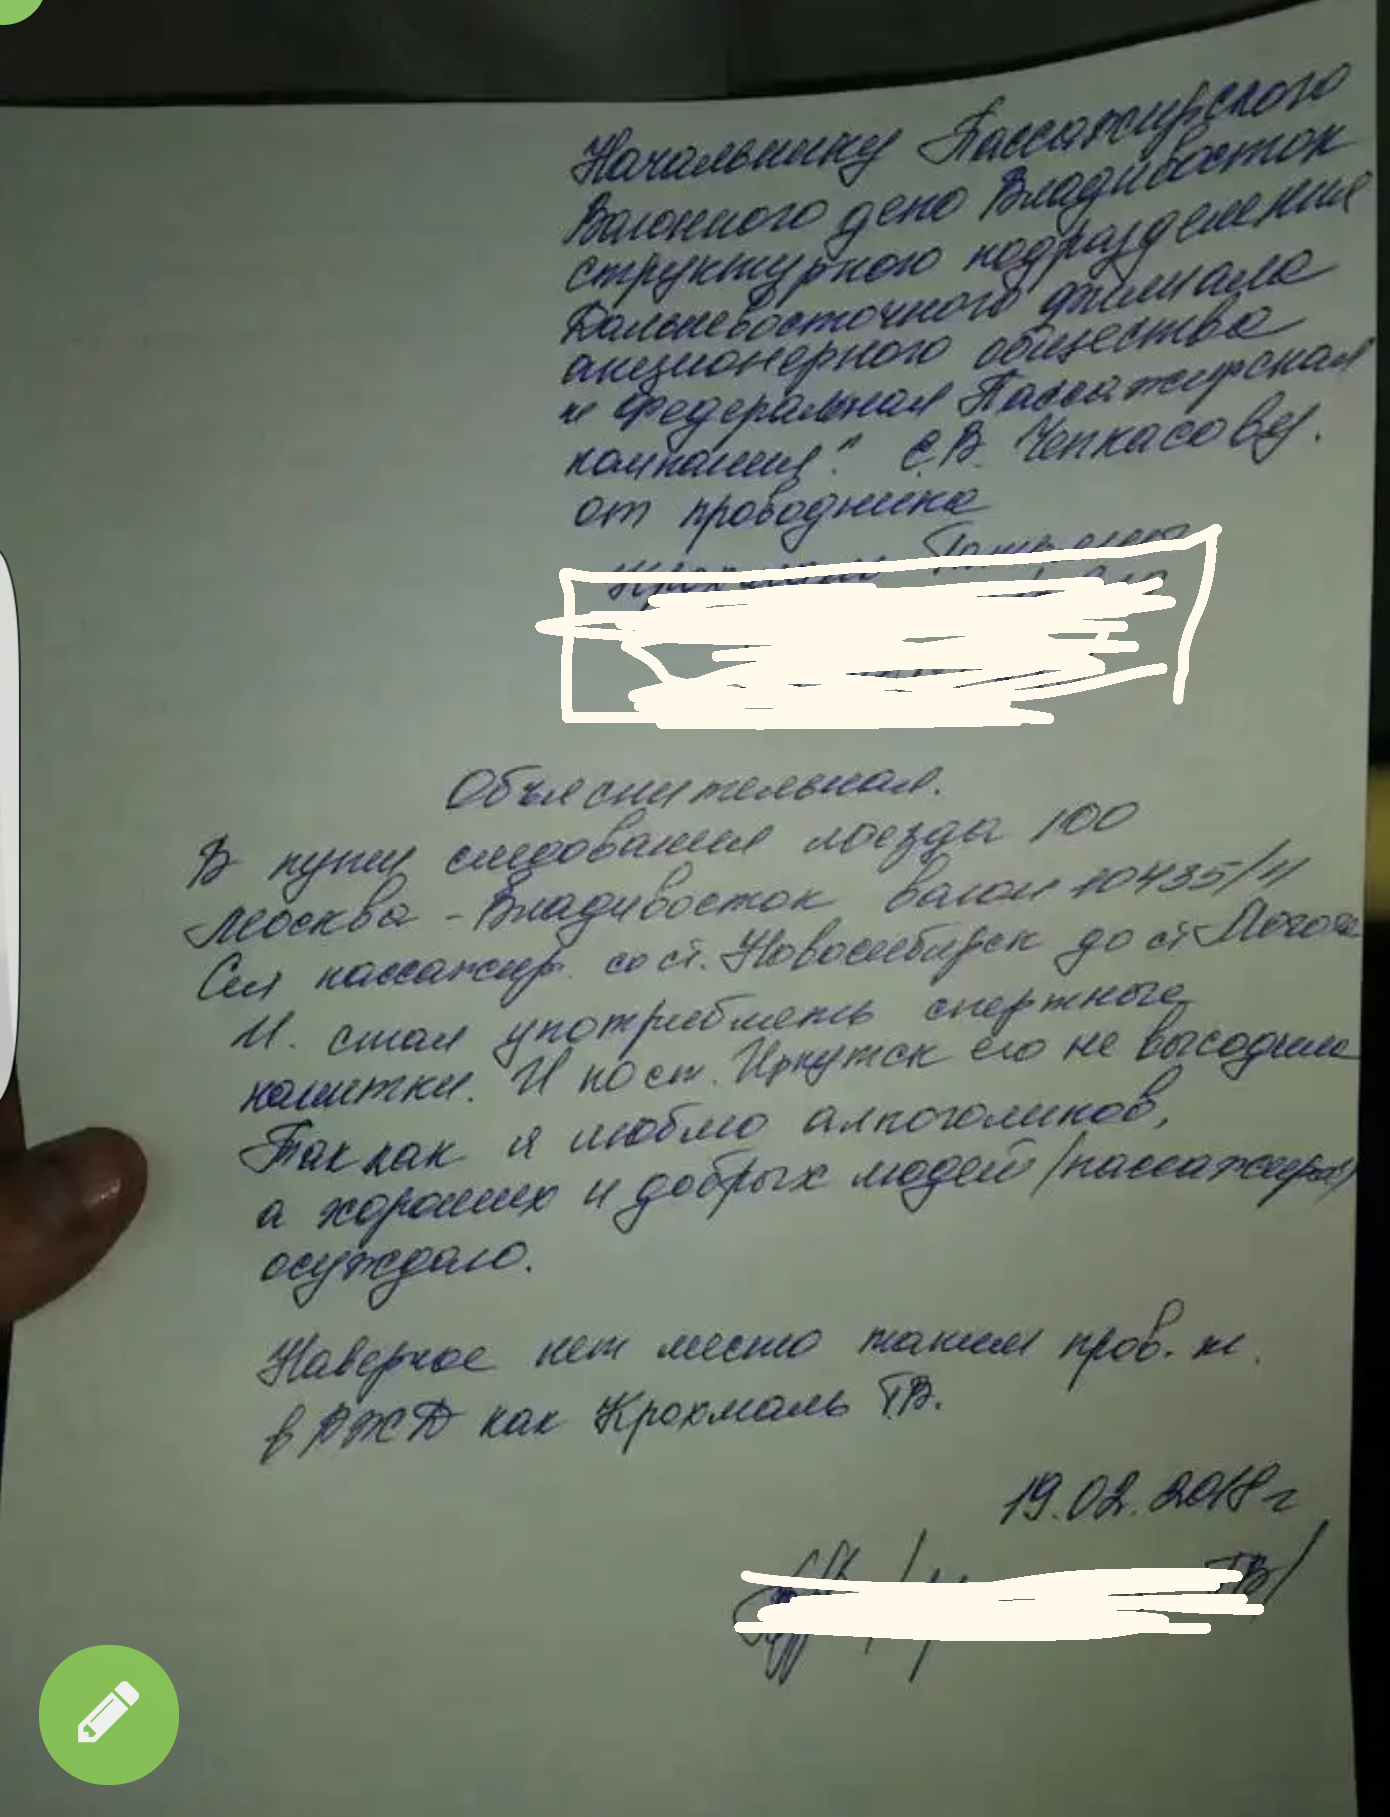 Начальнику Пассажирского
Вагонного депо Владивосток
структурного подразделения
Дальневосточного филиала
акционерного общества
"Федеральная Пассажирская
компания". С.В. Чепкасову.
от проводника
Объяснительная.
В пути следования поезда 100
Москва - Владивосток вагон 10435/11
Сел пассажир. со ст. Новосибирск до ст Могоча
И. стал употриблять спертные
напитки. И по ст. Иркутск его не высодили
Так как я люблю алкоголиков,
а хороших и добрых людей (пассажиров)
осуждаю.
Наверное нет место таким пров. к.
в РЖД как Крохмаль Т.В.
19.02.2018 г
ТВ/